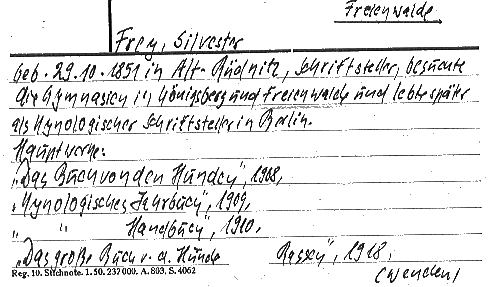 Freienwalde
Frey, Silvester
geb. 29.10.1851 in Alt-Rüdnitz, Schriftsteller, besuchte
die Gymnasien in Königsberg und Freienwalde und lebte später
als Kynologischer Schriftsteller in Berlin.
Hauptwerke:
„Das Buch von den Hunden", 1908,
„Kynologisches Jahrbuch", 1909,
" " Handbuch", 1910,
„Das große Buch v. d. Hunde Rassen", 1918,
Reg. 10. Stichnote. 1. 50. 237 000. A. 803. S. 4062
(wenden)